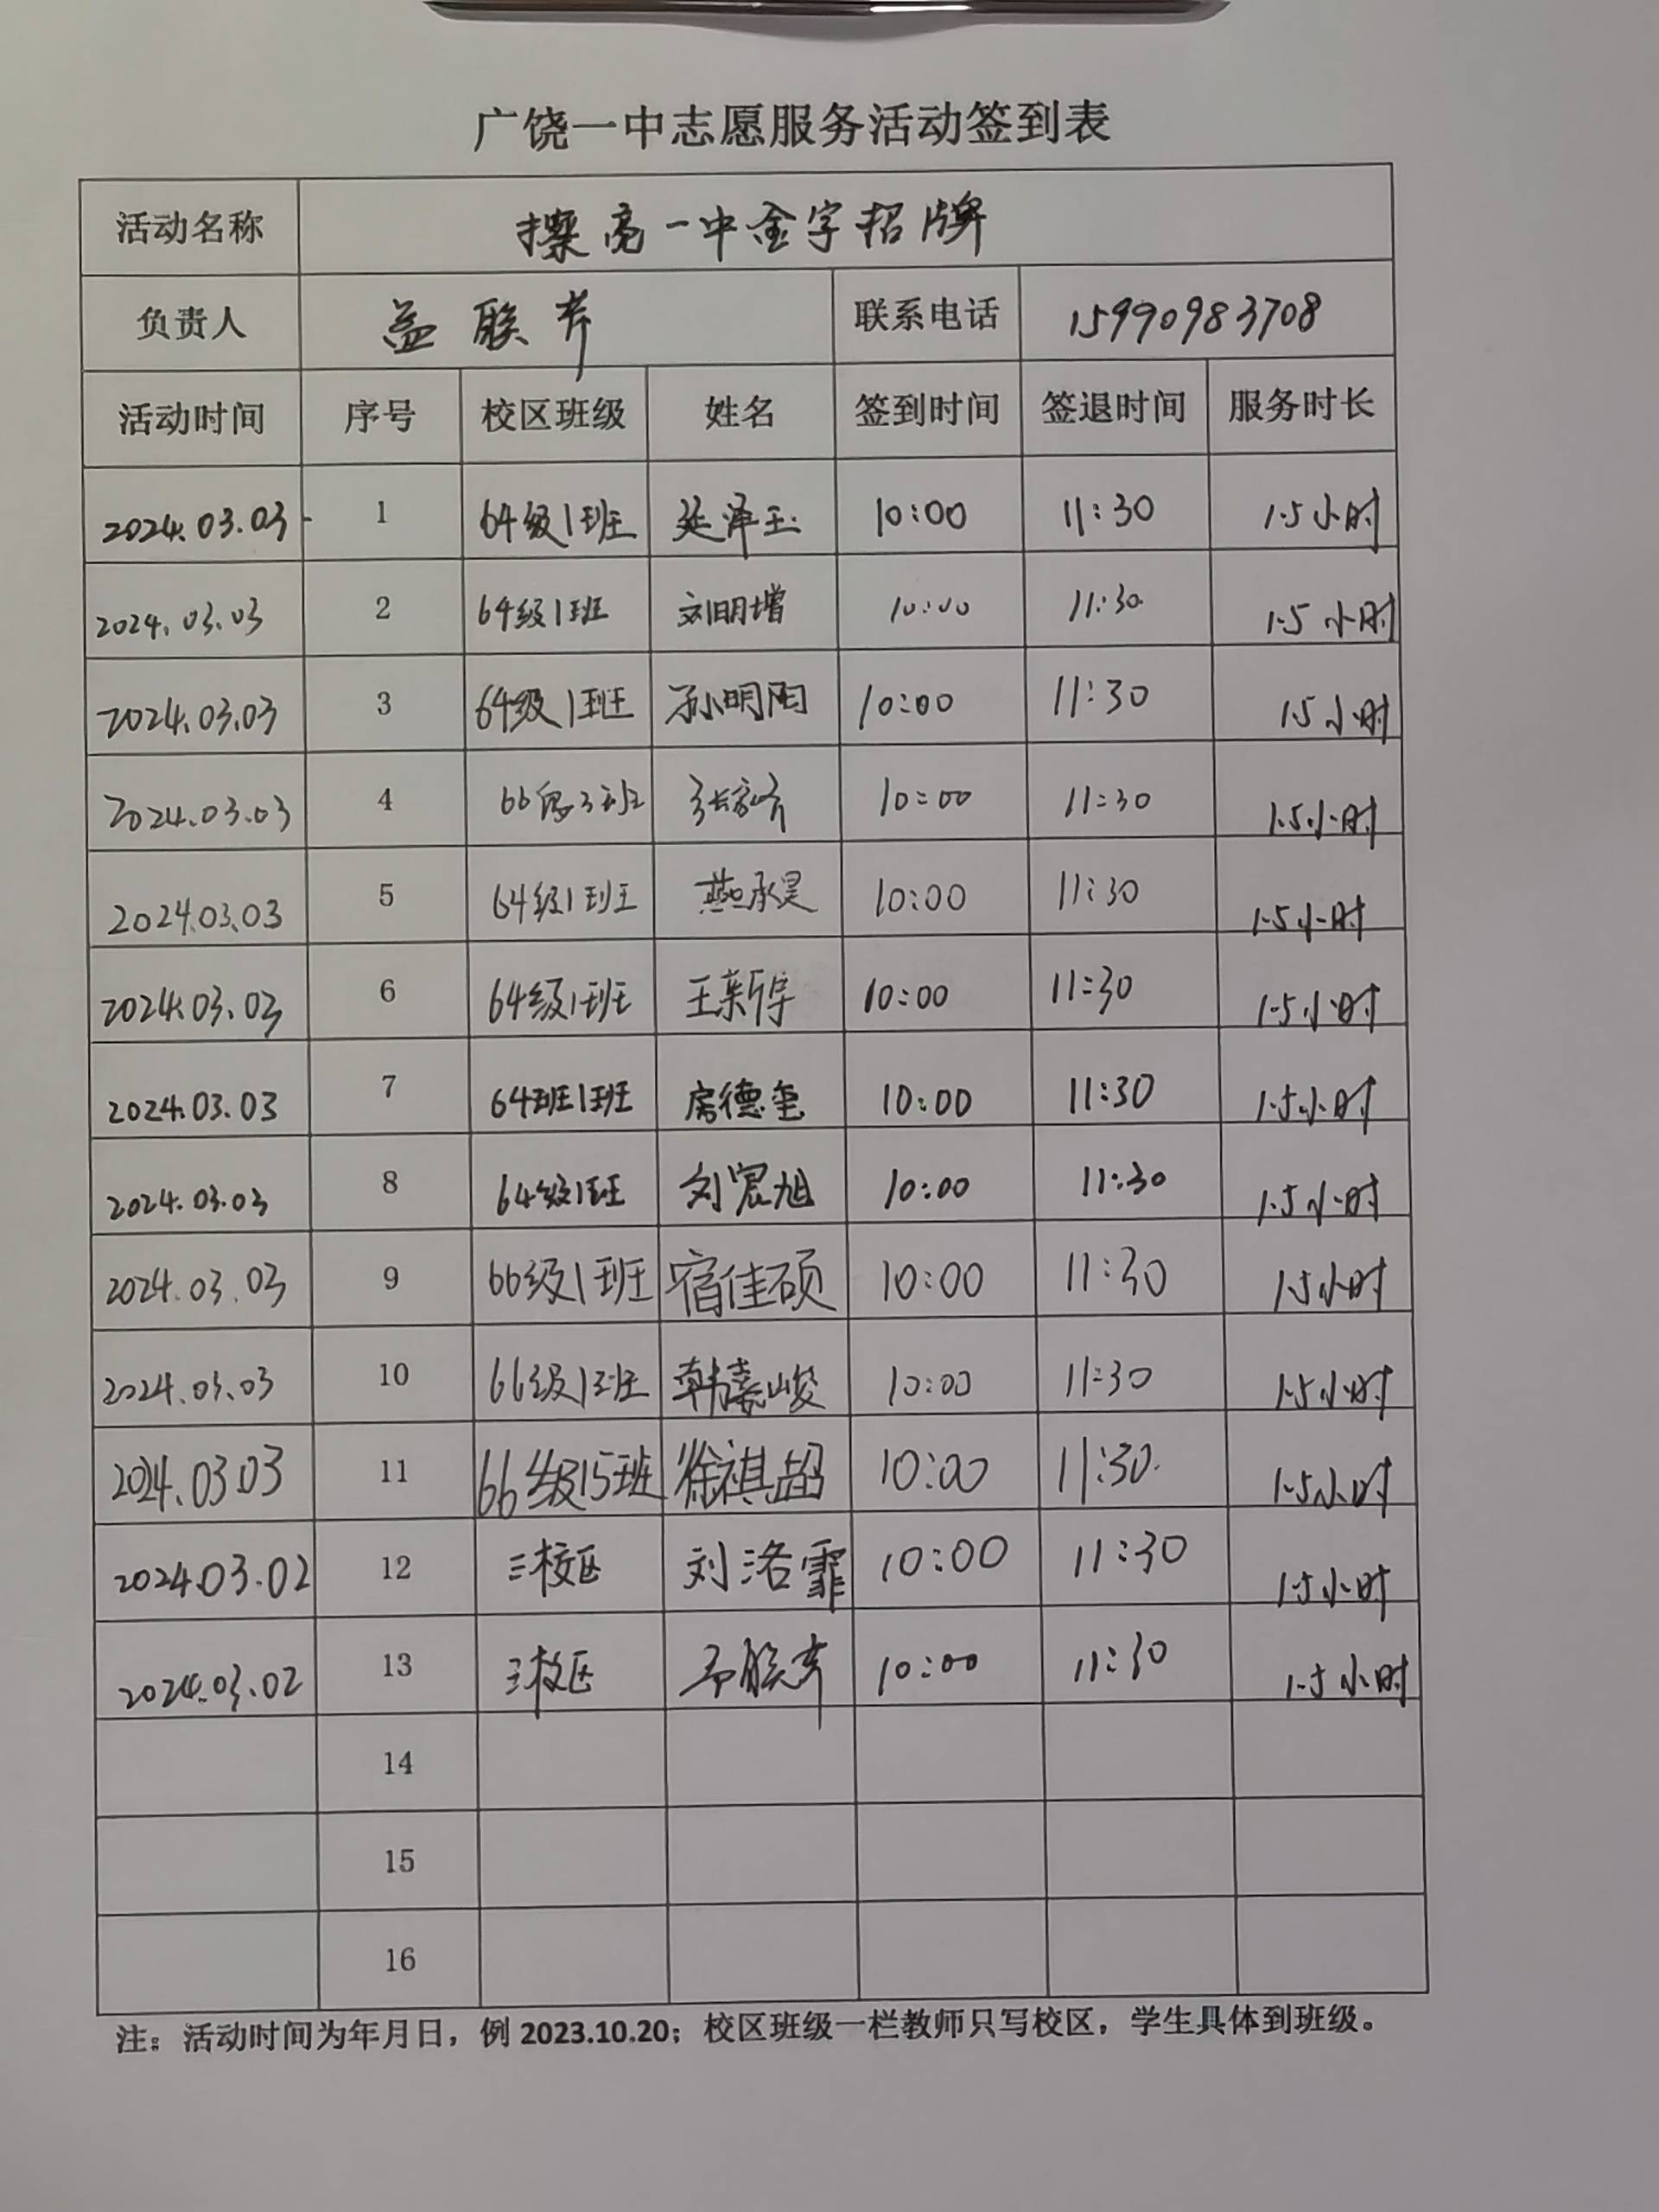 广饶一中志愿服务活动签到表
活动名称 擦亮一中金字招牌
负责人 联芹 联系电话 15990983708
活动时间 序号 校区班级 姓名 签到时间 签退时间 服务时长
2024.03.03 1 64级1班 延泽玉 10:00 11:30 1.5小时
2024.03.03 2 64级1班 刘明增 10:00 11:30 1.5小时
2024.03.03 3 64级1班 孙明阳 10:00 11:30 1.5小时
2024.03.03 4 66级3班 10:00 11:30 1.5小时
2024.03.03 5 64级1班 燕承昊 10:00 11:30 1.5小时
2024.03.03 6 64级1班 王新宇 10:00 11:30 1.5小时
2024.03.03 7 64班1班 房德奎 10:00 11:30 1.5小时
2024.03.03 8 64级1班 刘宸旭 10:00 11:30 1.5小时
2024.03.03 9 66级1班 宿佳硕 10:00 11:30 1.5小时
2024.03.03 10 66级1班 韩熹峻 10:00 11:30 1.5小时
2024.03.03 11 66级15班 徐祺喆 10:00 11:30 1.5小时
2024.03.02 12 三校区 刘洛霏 10:00 11:30 1.5小时
2024.03.02 13 三校区 联芹 10:00 11:30 1.5小时
14
15
16
注：活动时间为年月日，例 2023.10.20；校区班级一栏教师只写校区，学生具体到班级。